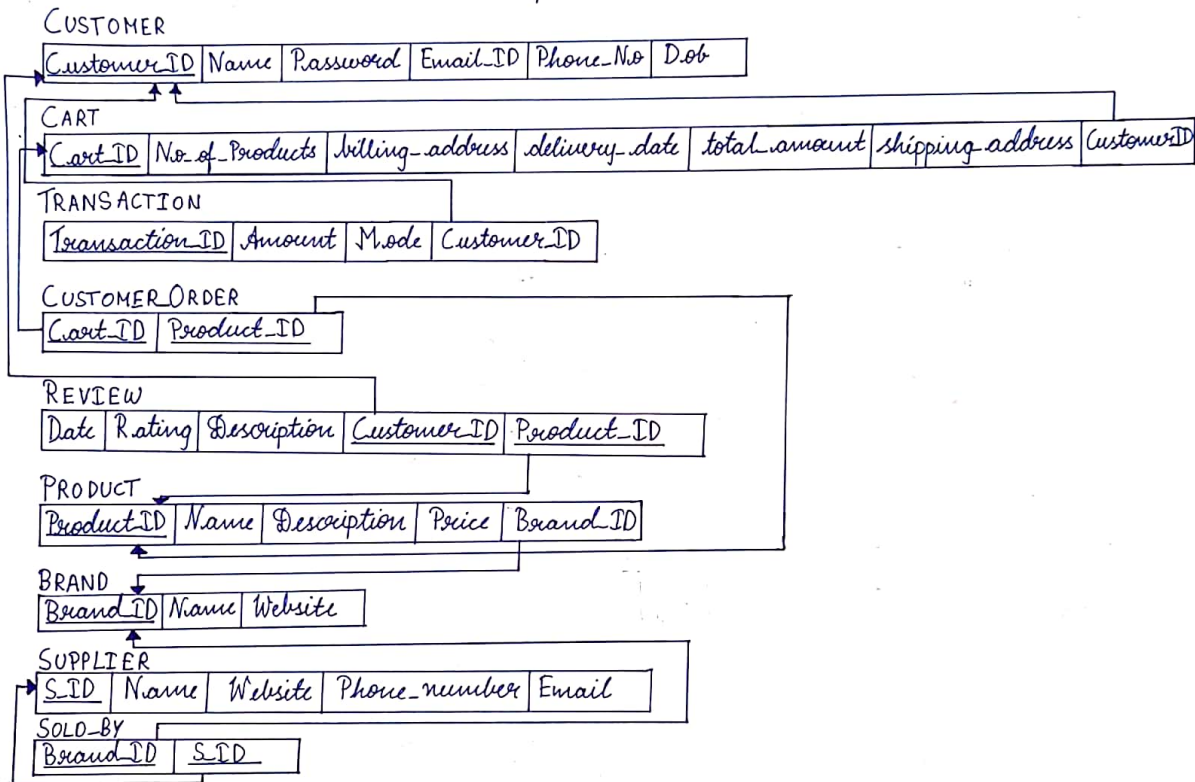 CUSTOMER
Customer_ID Name Password Email_ID Phone_No Dob
CART
Cart_ID No_of_Products billing_address delivery_date total_amount shipping_address CustomerID
TRANSACTION
Transaction_ID Amount Mode Customer_ID
CUSTOMER_ORDER
Cart_ID Product_ID
REVIEW
Date Rating Description Customer_ID Product_ID
PRODUCT
Product_ID Name Description Price Brand_ID
BRAND
Brand_ID Name Website
SUPPLIER
S_ID Name Website Phone_number Email
SOLD_BY
Brand_ID S_ID